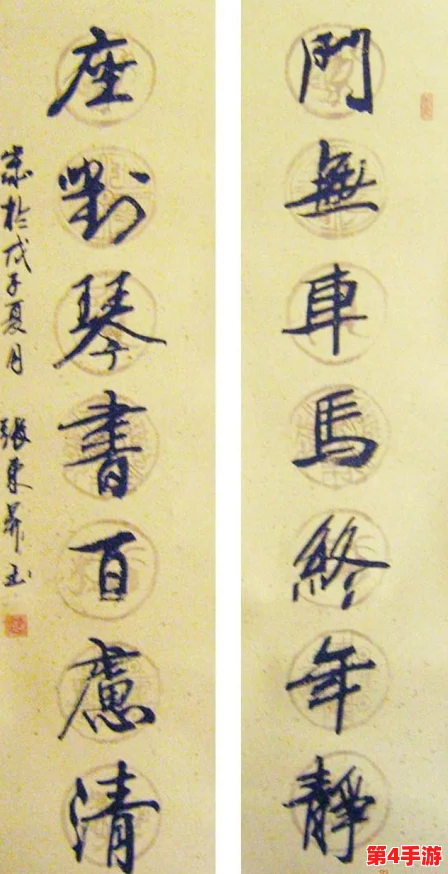 門無車馬終年靜
座對琴書百慮清
歲於戊子夏月 張東昇
第4手游